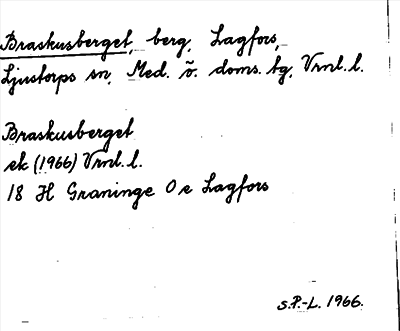 Braskusberget, berg, Lagfors,
Ljustorps sn, Med. ö. doms. tg, Vrnl. l.
Braskusberget
ek (1966) Vrnl. l.
18 H Graninge 0 e Lagfors
S.P.-L. 1966.